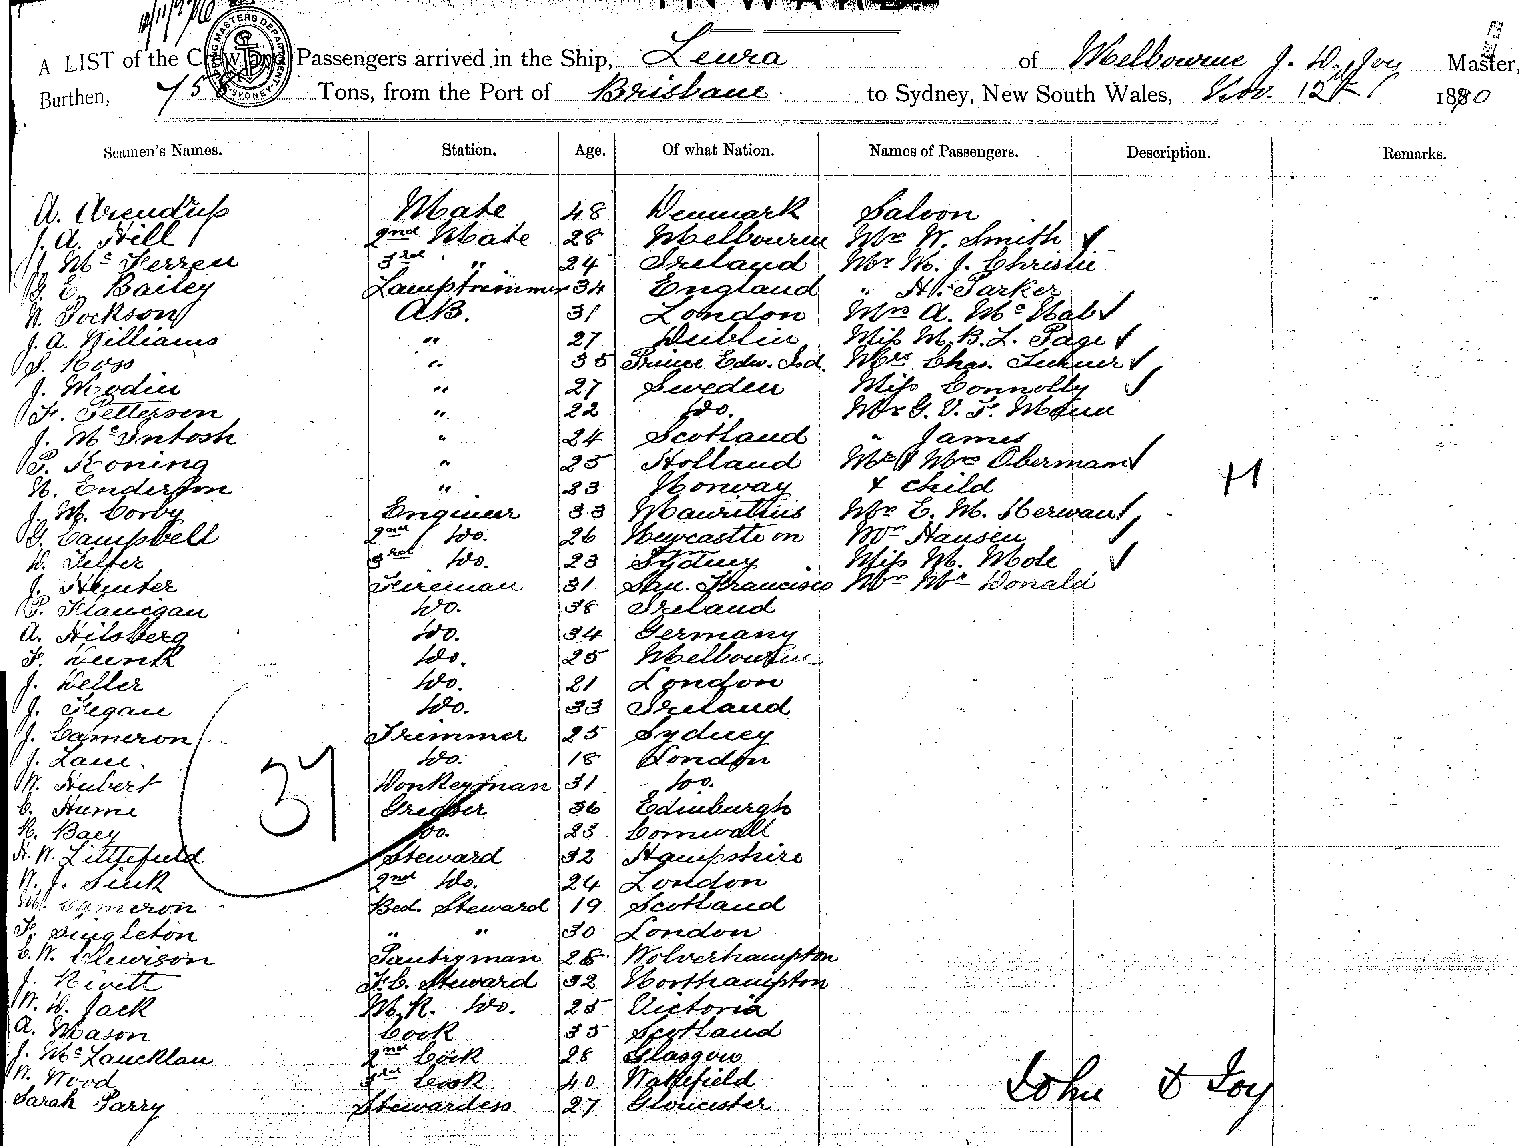 INWARD
A LIST of the Crew and Passengers arrived in the Ship, Leura of Melbourne J. D. Joy Master,
Burthen, Tons, from the Port of Brisbane to Sydney, New South Wales, Nov. 12th 1890
Seamen's Names. Station. Age. Of what Nation. Names of Passengers. Description. Remarks.
A. Arendrup Mate 48 Denmark Saloon
J. A. Hill 2nd Mate 28 Melbourne Mr W. Smith
J. McFerren 3rd " 24 Ireland Mr M. J. Christie
G. E. Bailey Lamptrimmer 34 England " H. Parker
W. Jockson AB. 31 London Mrs A. McNab
J. A. Williams " 27 Dublin Miss M. B. L. Page
S. Ross " 35 Prince Edw. Isd. Mrs Chas. Turner
J. Modin " 27 Sweden Miss Connolly
F. Petterson " 22 Do. Mr G. V. F. Mann
J. McIntosh " 24 Scotland " James
P. Koning " 25 Holland Mr & Mrs Obermann
N. Enderson " 23 Norway + child
J. M. Corby Engineer 33 Mauritius Mr E. M. Merwan
G. Campbell 2nd Do. 26 Newcastle on Mr Hansen
D. Telfer 3rd Do. 23 Sydney Miss M. Mode
J. Hunter Fireman 31 San. Francisco Mr McDonald
P. Flanegan Do. 38 Ireland
A. Hilsberg Do. 34 Germany
F. Do. 25 Melbourne
J. Deller Do. 21 London
J. Fegan Do. 33 Ireland
J. Cameron Trimmer 25 Sydney
J. Lane. Do. 18 London
W. Hubert Donkeyman 31 Do.
C. Hume Greaser 36 Edinburgh
H. Bacy Do. 23 Cornwall
H. W. Littlefield Steward 32 Hampshire
W. J. Sink 2nd Do. 24 London
Cameron Bed. Steward 19 Scotland
F. Singleton " " 30 London
C. W. Clewison Pantryman 28 Wolverhampton
J. Rivett F.C. Steward 32 Northampton
W. D. Jack M. R. Do. 25 Victoria
A. Mason Cook 35 Scotland
J. McLaucklan 2nd Cook 28 Glasgow
W. Wood 3rd Cook 40 Wakefield
Sarah Parry Stewardess 27 Gloucester
37
H
John D Joy